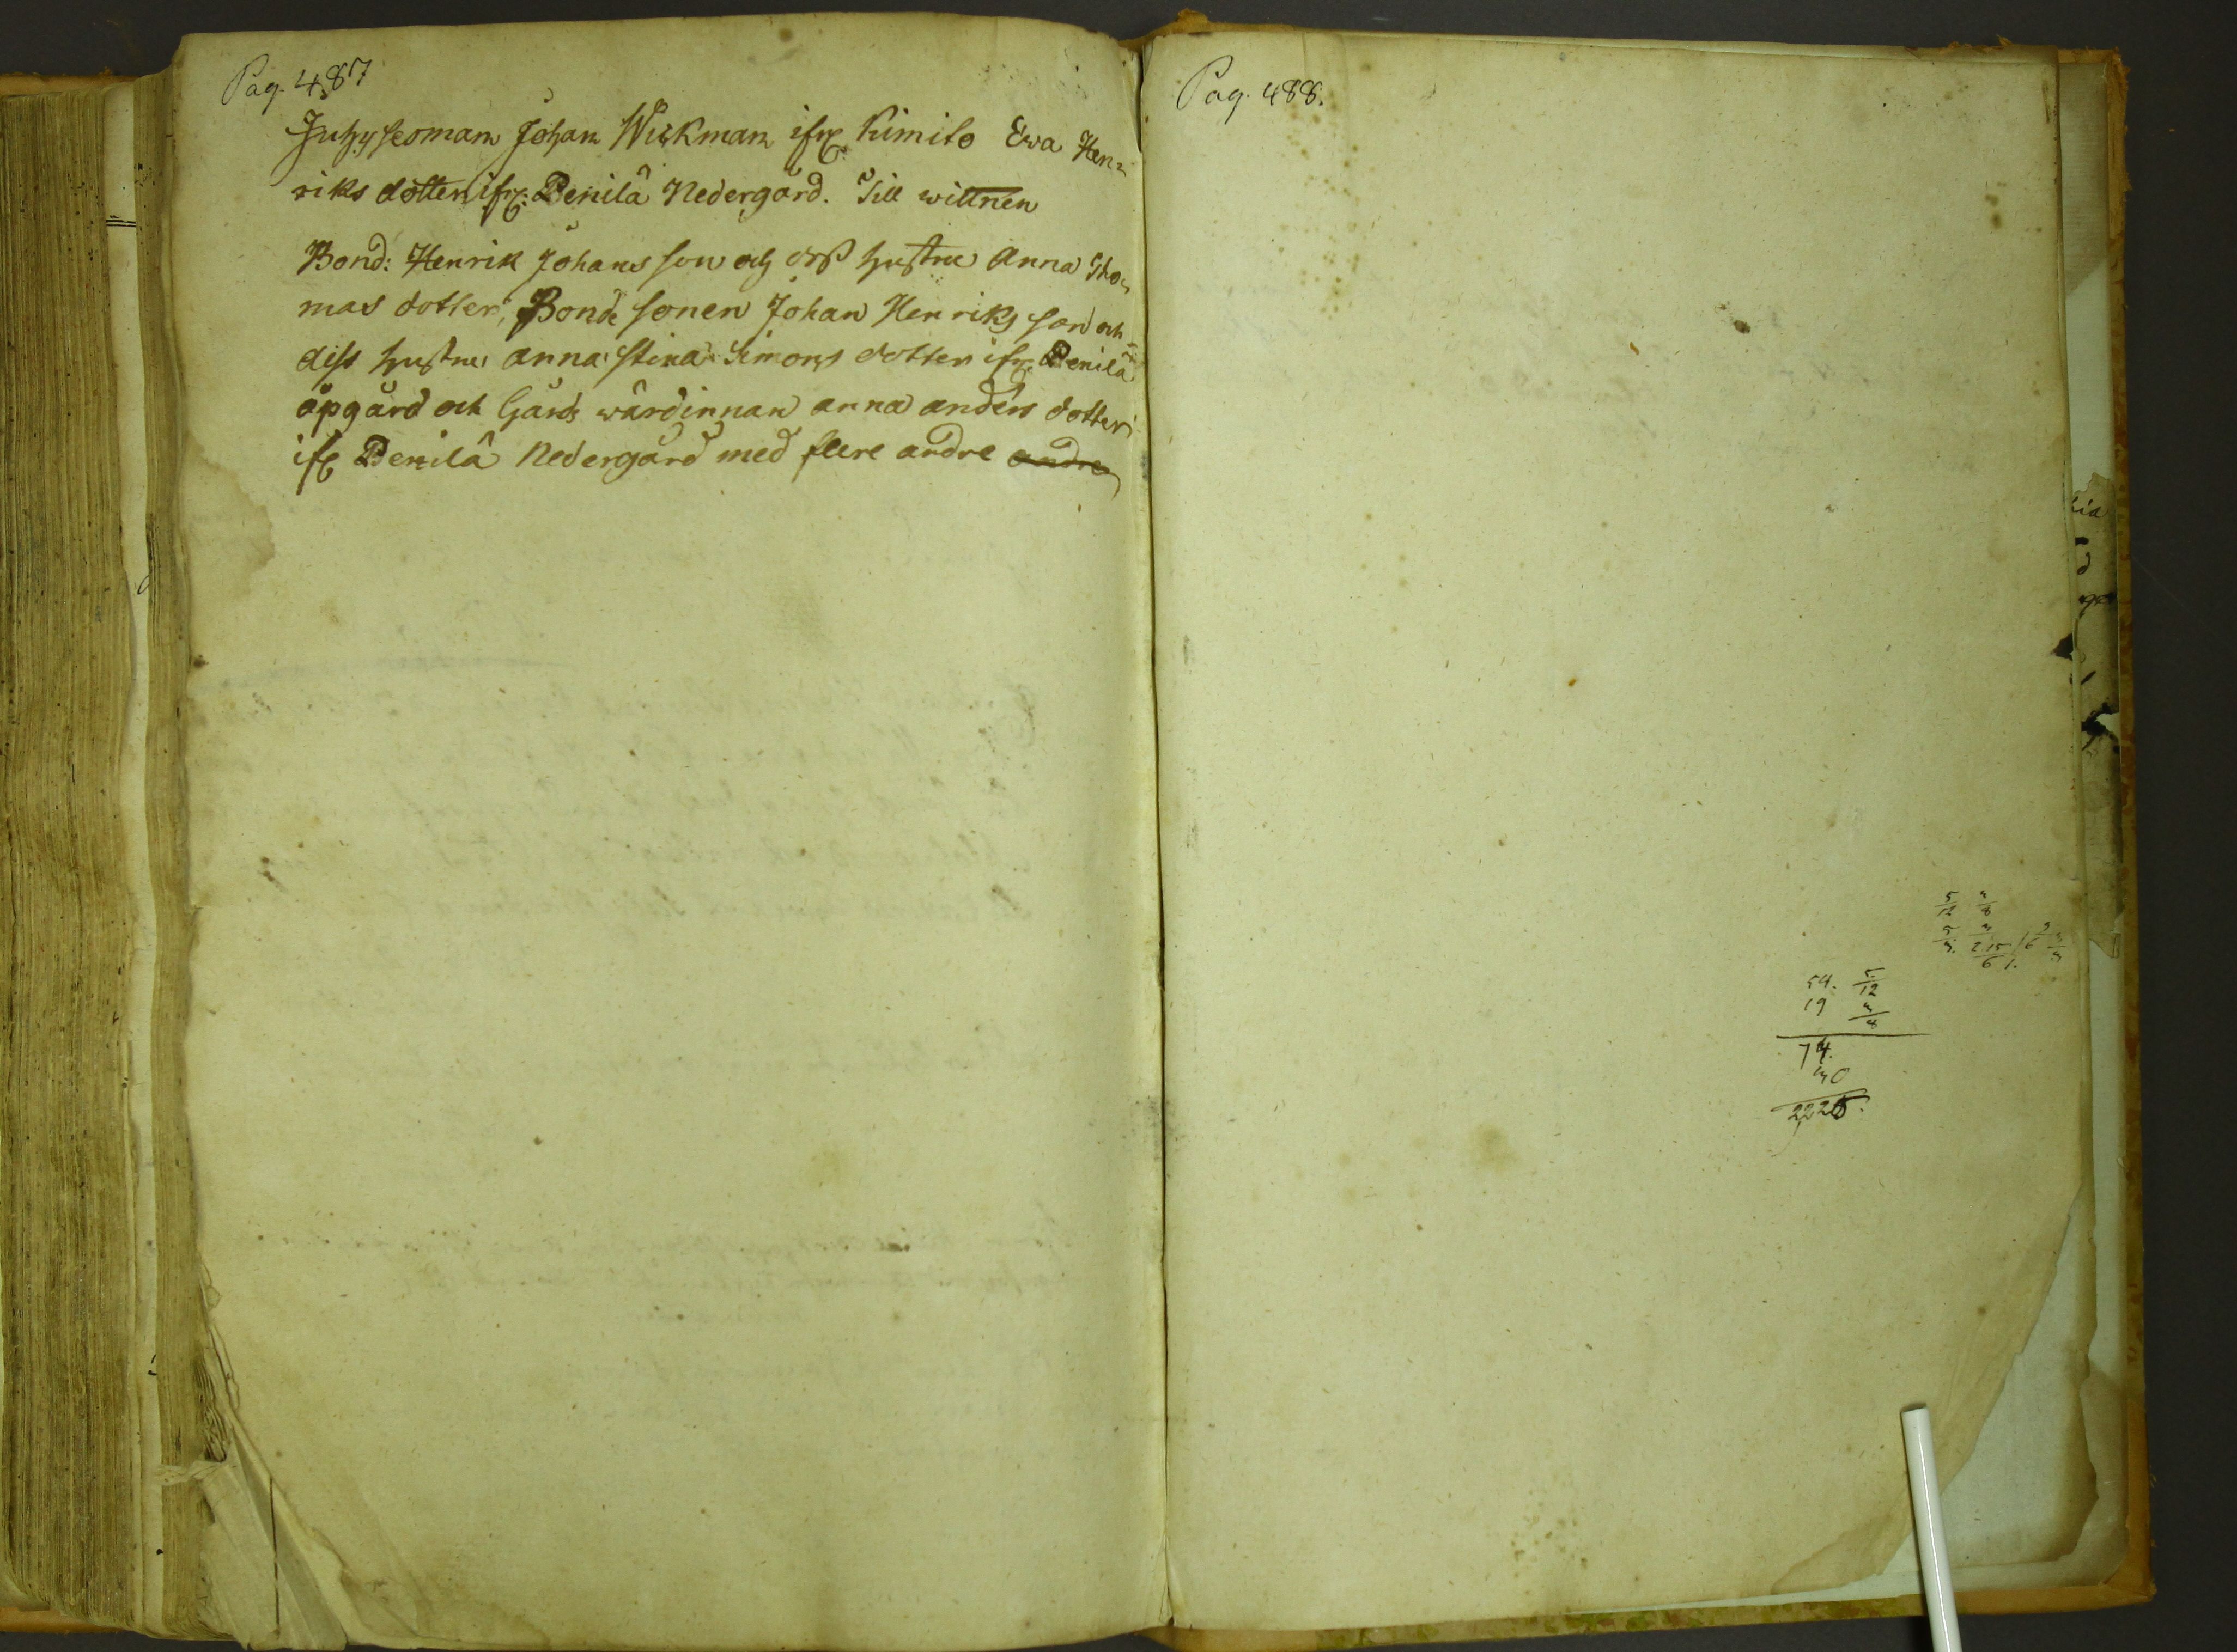 Pag. 487
Johan Wickman ifr. Kimito Ewa Hen=
riks dotter ifr: Penilâ Nedergård. Till wittnen
Bond: Henrik Johans son och dess hustru Anna Tho=
mas dotter, Bonde sonen Johan Henriks son och
dess hustru anna stina Simons dotter ifr. Penilâ
öpgård och Gårds wärdinnan anna anders dotter
ifr Penilâ Nedergård med flere andre andre
Pag. 488.
5/12
54. 5/12
19
74.